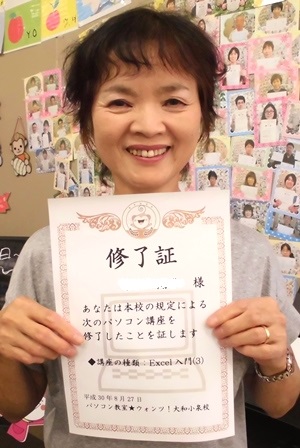 修了証
様
あなたは本校の規定による
次のパソコン講座を
修了したことを証します
◆講座の種類：Excel入門(3)
平成30年8月27日
パソコン教室★ウォンツ！大和小泉校